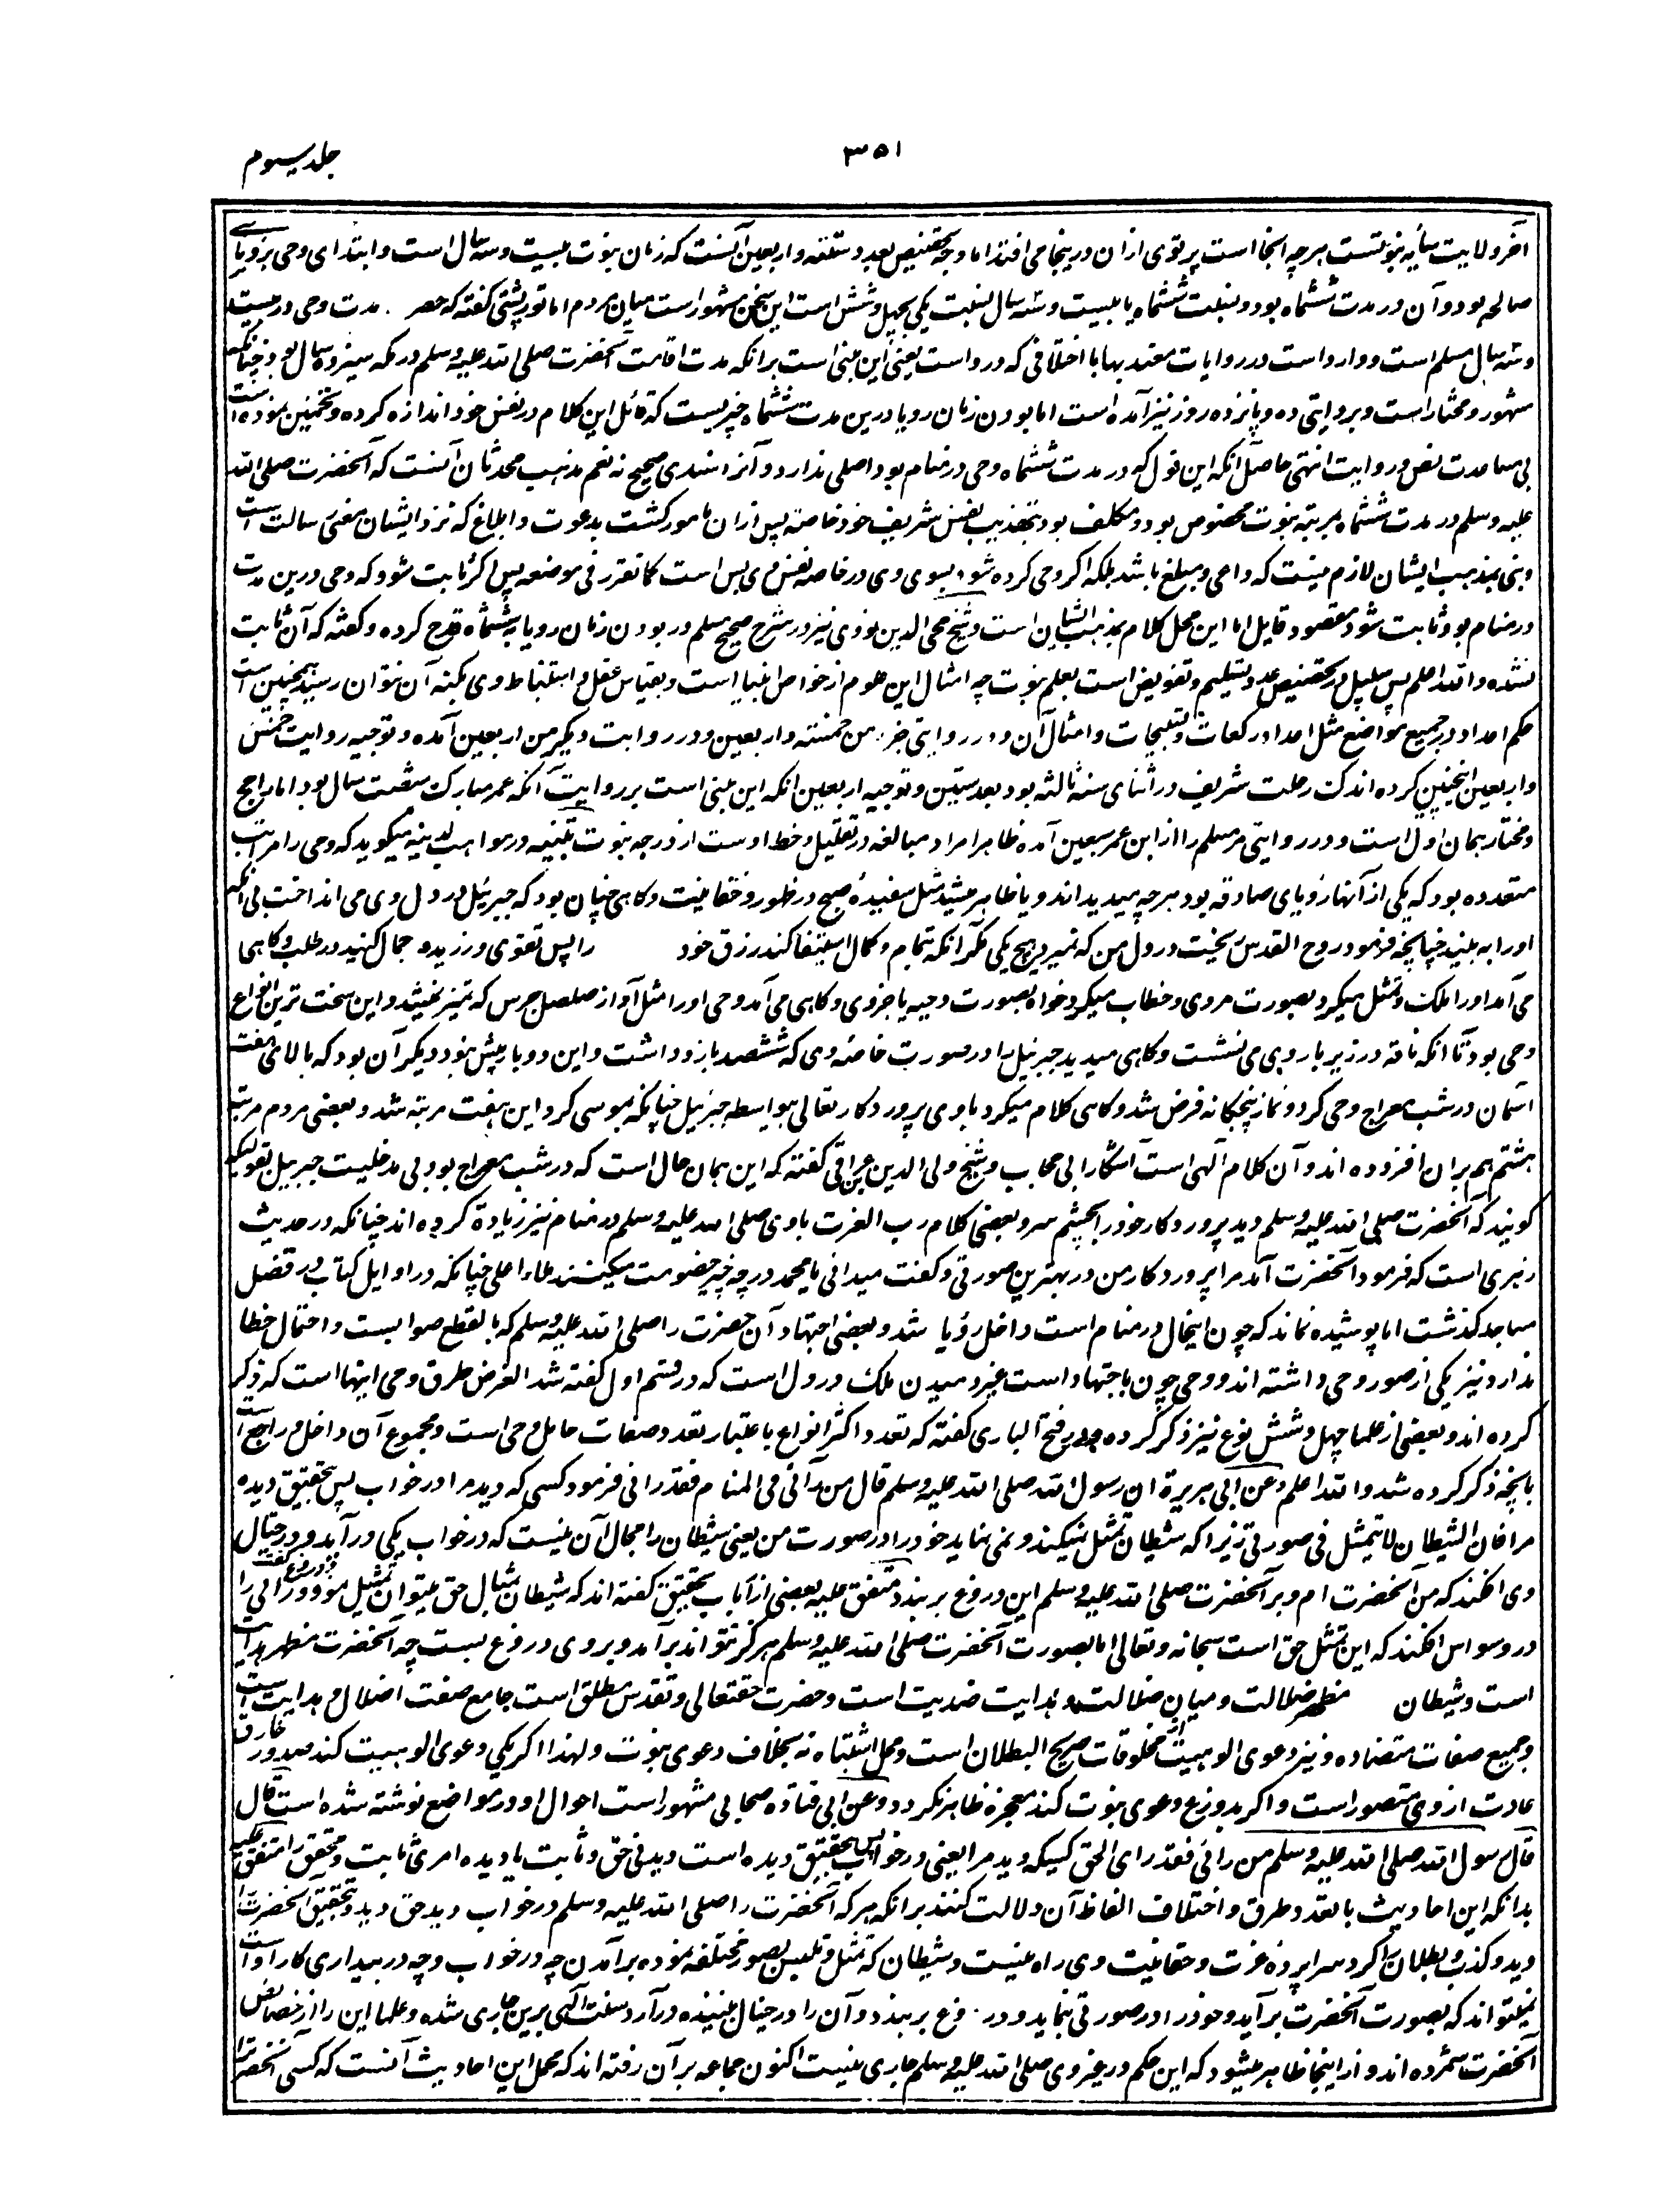 جلد سیوم
۳۵۱
آخر ولایت سایه نبوتست هرچه اینجا است پرتوی ازان درینجا می افتد اما وجه تخصیص بعدد ستته و اربعین آنست که زمان نبوت بیست و سه سال است و ابتدای وحی برویای
صالحه بود و آن در مدت ششماه بود و نسبت ششماه با بیست و سه سال نسبت یکی بچهل و شش است این سخن مشهور است میان مردم اما تورپشتی گفته که حصر مدت وحی در بیست
و سه سال مسلم است و وارد است در روایات معتد بها با اختلافی که درو است یعنی این مبنی است برانکه مدت اقامت آنحضرت صلی الله علیه وسلم در مکه سیزده سال بود چنانکه
مشهور و مختار است و بروایتی ده و پانزده روز نیز آمده است اما بودن زمان رویا درین مدت ششماه چیزیست که قائل این کلام در نفس خود اندازه کرده و تخمین نموده است
بی مساعدت نص و روایت انتهی حاصل آنکه این قول که در مدت ششماه وحی در منام بود اصلی ندارد و آنرا سندی صحیح نه نعم مذهب محدثان آنست که آنحضرت صلی الله
علیه وسلم در مدت ششماه بمرتبه نبوت مخصوص بود و مکلف بود بتهذیب نفس شریف خود خاصة پس ازان مامور گشت بدعوت و ابلاغ که نزد ایشان معنی رسالت است
و نبی بمذهب ایشان لازم نیست که داعی و مبلغ باشد بلکه اگر وحی کرده شود بسوی وی در خاصه نفس وی بس است کما تقرر فی موضعه پس اگر ثابت شود که وحی درین مدت
در منام بود ثابت شود مقصود قایل اما این محل کلام بمذهب ایشان است و شیخ محی الدین نووی نیز در شرح صحیح مسلم در بودن زمان رویا ششماه قدح کرده و گفته که آن ثابت
نشده والله اعلم پس سبیل در تخصیص عدد تسلیم و تفویض است بعلم نبوت چه امثال این علوم از خواص انبیا است و بقیاس عقل و استنباط وی بکنه آن نتوان رسید همچنین است
حکم اعداد در جمیع مواضع مثل اعداد رکعات و تسبیحات و امثال آن و در روایتی جزء من خمسته و اربعین و در روایت دیگر من اربعین آمده و توجیه روایت خمس
و اربعین اینچنین کرده اند که رحلت شریف در اثنای سنه ثالثه بود بعد ستین و توجیه اربعین آنکه این مبنی است بر روایت آنکه عمر مبارک شصت سال بود اما راجح
و مختار همان اول است و در روایتی مر مسلم را از ابن عمر سبعین آمده ظاهرا مراد مبالغه در تقلیل و حط اوست از درجه نبوت تنبیه در مواهب لدنیه میگوید که وحی را مراتب
متعدده بود که یکی از آنها رویای صادقه بود هرچه میدید اند و یا ظاهر میشد مثل سفیده صبح در ظهور و حقانیت و کاهی چنان بود که جبرئیل در دل وی می انداخت بی آنکه
او را به بیند چنانچه فرمود روح القدس ریخت در دل من که نمیرد هیچ یکی مگر آنکه تمام و کمال استیفا کند رزق خود را پس تقوی ورزید و جمال کنید در طلب و کاهی
می آمد او را ملک و تمثل میکرد بصورت مردی و خطاب میکرد خواه بصورت دحیه یا جزوی و کاهی می آمد وحی او را مثل آواز صلصل جرس که تمیز نمیشد و این سخت ترین انواع
وحی بود تا آنکه ناقه در زیر بار وی می نشست و کاهی میدید جبرئیل را در صورت خاصه وی که ششصد بازو داشت و این دو بار بیش نبود دیگر آن بود که بالای هفت
آسمان در شب معراج وحی کرد و نماز پنجگانه فرض شد و کاهی کلام میکرد با وی پروردکار تعالی بیواسطه جبرئیل چنانکه بموسی کرد این هفت مرتبه شد و بعضی مردم مرتبه
هشتم هم بران افزوده اند و آن کلام آلهی است آشکارا بی حجاب و شیخ ولی الدین عراقی گفته که این همان حال است که در شب معراج بود بی مدخلیت جبریل بقولیکه
گویند که آنحضرت صلی الله علیه وسلم دید پروردکار خود را بچشم سر و بعضی کلام رب العزت با وی صلی الله علیه وسلم در منام نیز زیاده کرده اند چنانکه در حدیث
زهری است که فرمود آنحضرت آمد مرا پروردکار من در بهترین صورتی و گفت میدانی یا محمد در چه چیز خصومت میکنند ملاء اعلی چنانکه در اوایل کتاب در فضل
مساجد گذشت اما پوشیده نماند که چون اینحال در منام است داخل رؤیا شد و بعضی اجتهاد آن حضرت را صلی الله علیه وسلم که بالقطع صوابست و احتمال خطا
ندارد نیز یکی از صور وحی داشته اند و وحی چون باجتهاد است غیر دمیدن ملک در دل است که در قسم اول گفته شد الغرض طرق وحی اینها است که ذکر
کرده اند و بعضی از علما چهل و شش نوع نیز ذکر کرده و در فتح الباری گفته که تعدد اکثر انواع باعتبار تعدد صفات حامل وحی است و مجموع آن داخل و راجع است
بانچه ذکر کرده شد والله اعلم وعن ابی هریرة ان رسول الله صلی الله علیه وسلم قال من رآنی فی المنام فقد رانی فرمود کسی که دید مرا در خواب پس بتحقیق دیده
مرا فان الشیطان لا یتمثل فی صورتی زیرا که شیطان تمثل نمیکند و نمی نماید خود را در صورت من یعنی شیطان را مجال آن نیست که در خواب یکی در آید و در خیال
وی افکند که من آنحضرت ام و بر آنحضرت صلی الله علیه وسلم این دروغ بر بندد متفق علیه بعضی از ارباب تحقیق گفته اند که شیطان بمثال حق میتواند تمثیل نمود و دروغ گفت رائی را
در وسواس افکند که این تمثل حق است سبحانه و تعالی اما بصورت آنحضرت صلی الله علیه وسلم هرگز نتواند برآمد و بر وی دروغ بست چه آنحضرت مظهر هدایت
است و شیطان مظهر ضلالت و میان ضلالت و هدایت ضدیت است و حضرت حقتعالی و تقدس مطلق است جامع صفت اضلال و هدایت است
و جمیع صفات متضاده و نیز دعوی الوهیت از مخلوقات صریح البطلان است و محل اشتباه نه بخلاف دعوی نبوت و لهذا اگر یکی دعوی الوهیت کند صدور خارق
عادت از وی متصور است و اگر بدروغ دعوی نبوت کند معجزه ظاهر نگردد وعن ابی قتاده صحابی مشهور است احوال او در مواضع نوشته شده است قال
قال رسول الله صلی الله علیه وسلم من رانی فقد رای الحق کسیکه دید مرا یعنی در خواب پس بتحقیق دیده است دیدنی حق و ثابت یا دیده امری ثابت و محقق را متفق علیه
بدانکه این احادیث با تعدد طرق و اختلاف الفاظ آن دلالت کنند برانکه هر که آنحضرت را صلی الله علیه وسلم در خواب دید حق دید و بتحقیق آنحضرت را
دید و کذب و بطلان را گرد سراپرده عزت و حقانیت وی راه نیست و شیطان که تمثل و تلبس بصور مختلفه نموده برآمدن چه در خواب و چه در بیداری کار اوست
نمیتواند که بصورت آنحضرت برآید و خود را در صورتی بنماید و دروغ بر بندد و آن را در خیال بیننده درآرد سنت الهی برین جاری شده و علما این را از خصائص
آنحضرت شمرده اند و از اینجا ظاهر میشود که این حکم در غیر وی صلی الله علیه وسلم جاری نیست اکنون جماعه برآن رفته اند که محل این احادیث آنست که کسی آنحضرت را